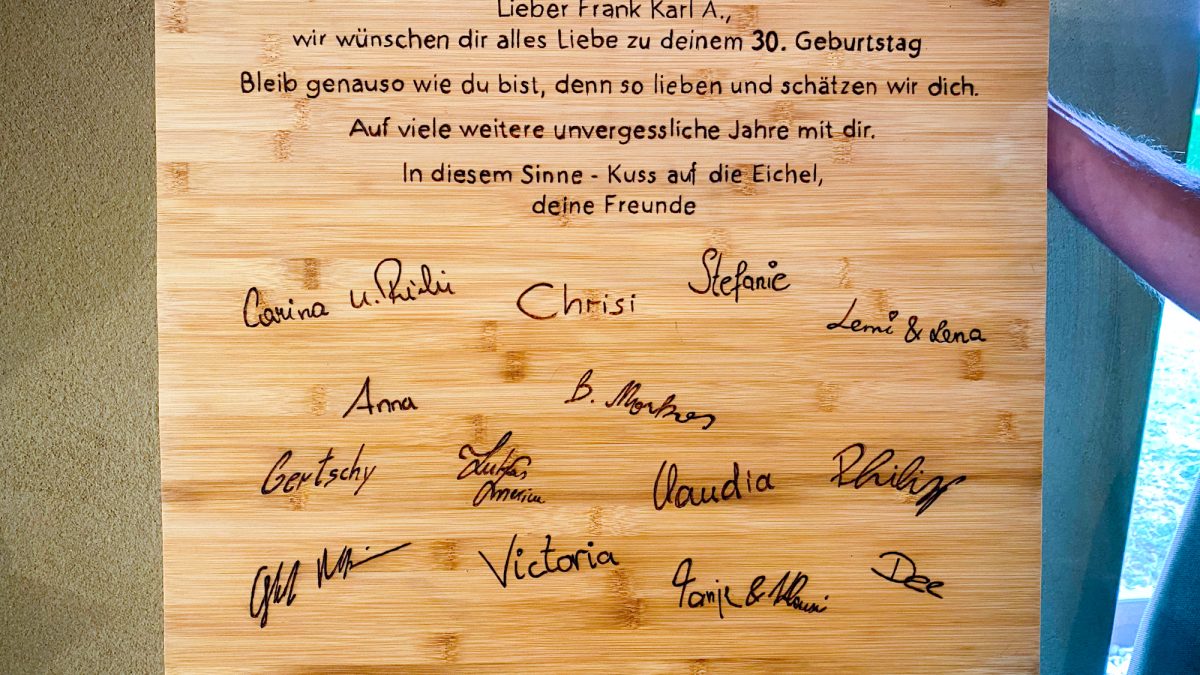 Lieber Frank Karl A.,
wir wünschen dir alles Liebe zu deinem 30. Geburtstag
Bleib genauso wie du bist, denn so lieben und schätzen wir dich.
Auf viele weitere unvergessliche Jahre mit dir.
In diesem Sinne - Kuss auf die Eichel,
deine Freunde
Carina u.
Chrisi
Stefanie
Lemi & Lena
Anna
B.
Gertschy
Lukas
Claudia
Philipp
Victoria
Tanja &
Dee